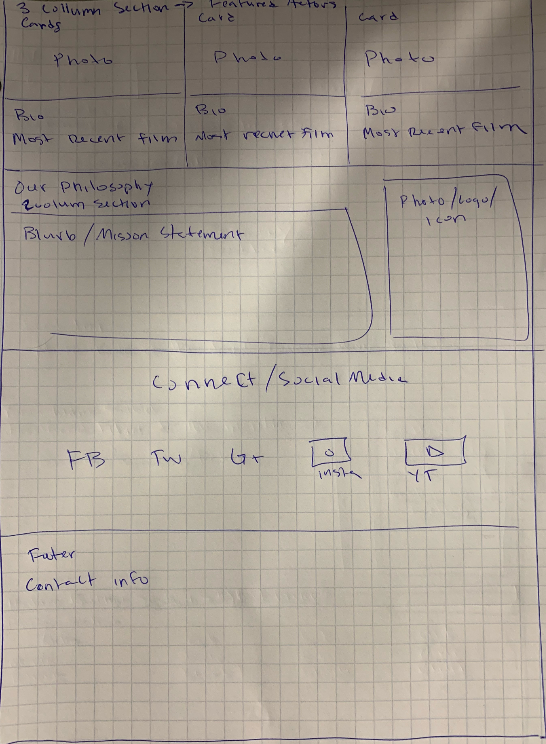 3 Collumn Section → Featured Actors
Cards
Card
Card
Photo
Photo
Photo
Bio
Most Recent film
Bio
Most recnet film
Bio
Most Recent Film
Our Philosophy
2 colum section
Blurb / Misson Statement
Photo/Logo/
icon
Connect/Social Media
FB
Tw
G+
insta
YT
Futer
Contact info